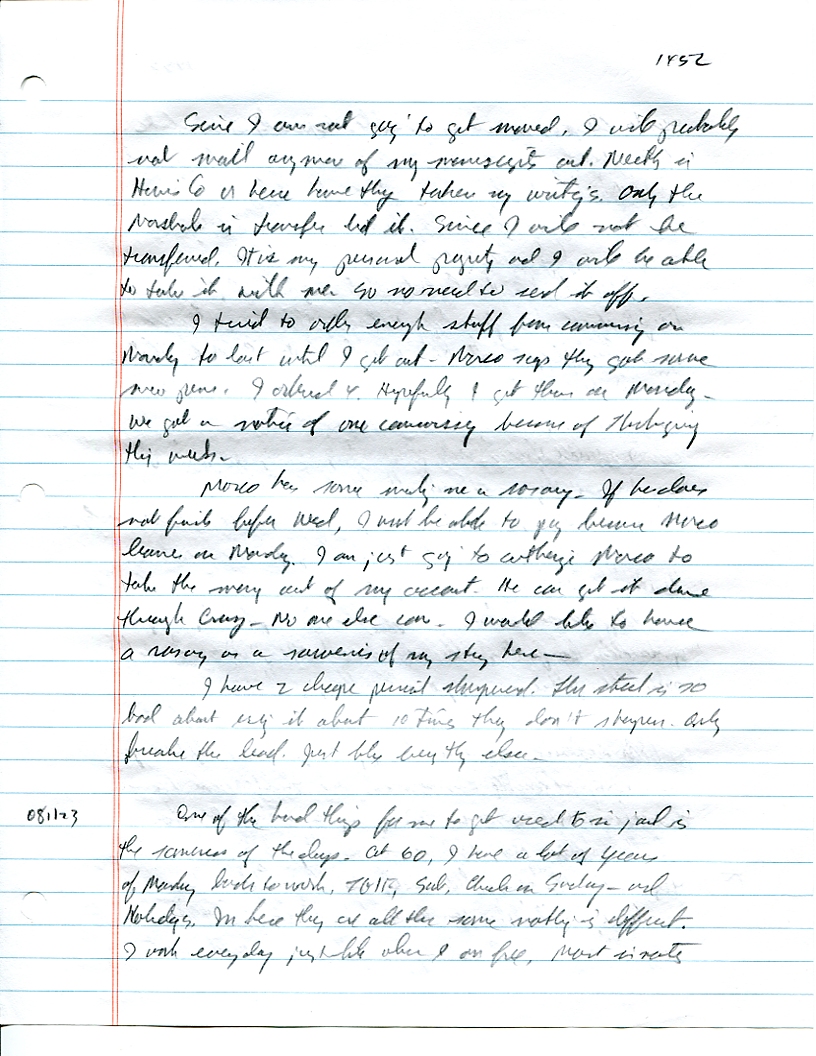 1452
Since I am not going to get moved, I will probably
not mail anymore of my manuscripts out. Neither in
or here have they taken my writings. Only the
in transfer did it. Since I will not be
transferred. It is my personal property and I will be able
to take it with me. So no need to send it off.
I tried to order enough stuff from commissary on
Monday to last until I get out - Marco says they got some
new pens. I ordered 4. Hopefully I get them on Monday -
We got a notice of one commissary because of Thanksgiving
this week -
Marco has some making me a rosary - If he does
not finish before Wed, I will not be able to pay because Marco
leaves on Monday. I am just going to authorize Marco to
take the money out of my account. He can get it done
through - No one else can - I would like to have
a rosary as a souvenir of my stay here -
I have 2 cheap pencil sharpeners. The steel is so
bad about using it about 10 times they don't sharpen. Only
breaks the lead. Just like everything else -
081123 One of the hard things for me to get used to in jail is
the sameness of the days - At 60, I have a lot of years
of Monday back to work, TGIF, Sat, Church on Sunday - and
Holidays. In here they are all the same nothing is different.
I work everyday just like when I am free, Most inmates